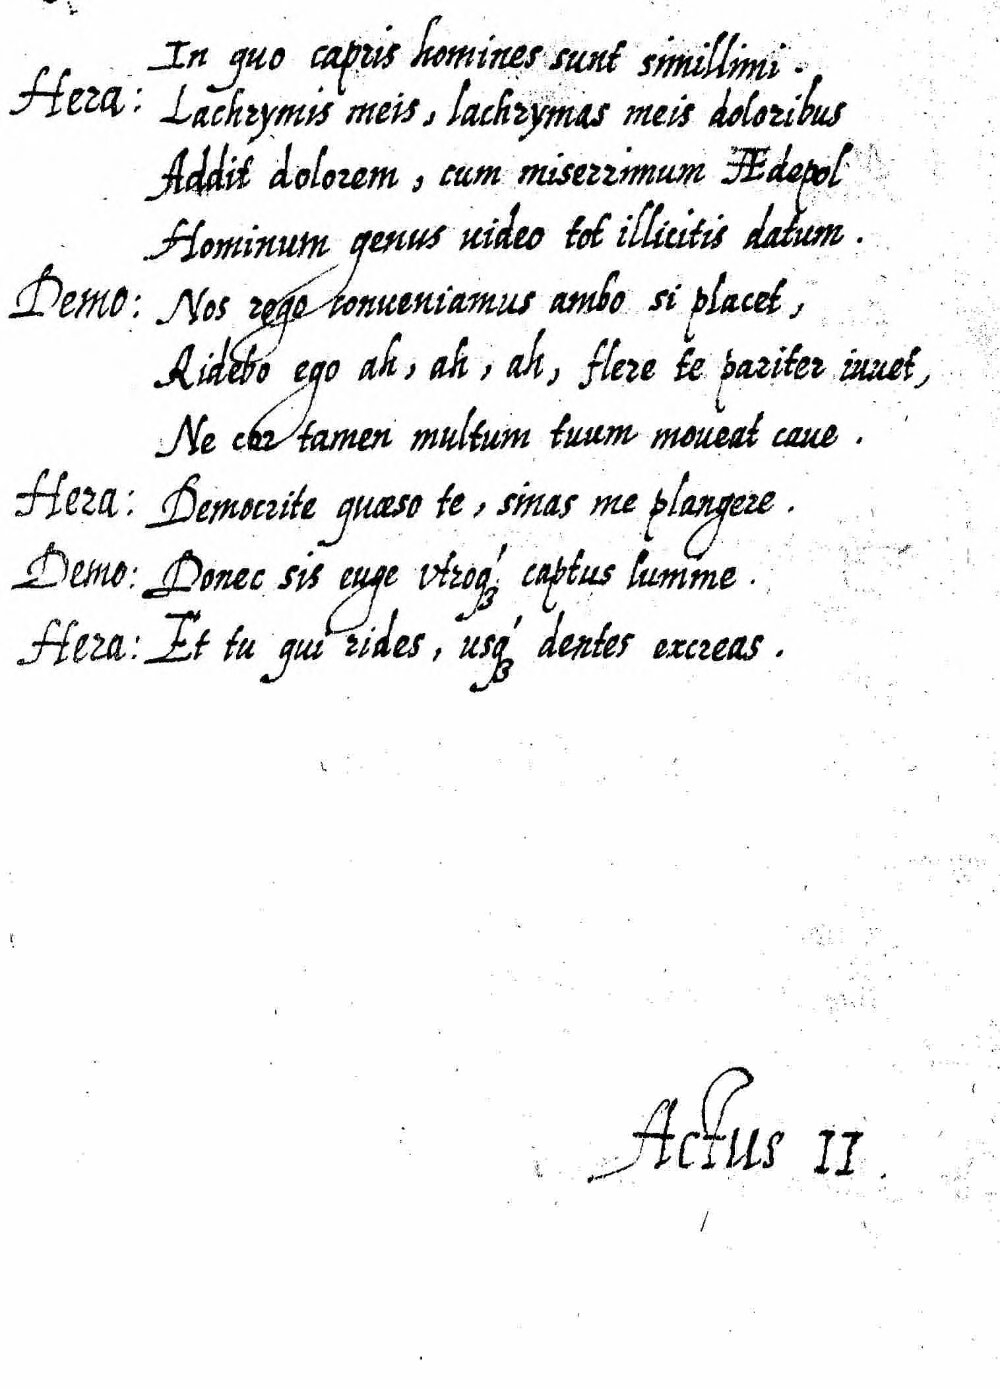 In quo capris homines sunt simillimi.
Hera: Lachrymis meis, lachrymas meis doloribus
Addit dolorem, cum miserrimum Ædepol
Hominum genus uideo tot illicitis datum.
Demo: Nos rogo conueniamus ambo si placet,
Ridebo ego ah, ah, ah, flere te pariter iuuet,
Ne cor tamen multum tuum moueat caue.
Hera: Democrite quæso te, sinas me plangere.
Demo: Donec sis euge vtroqꝫ captus lumine.
Hera: Et tu qui rides, usqꝫ dentes excreas.
Actus II.